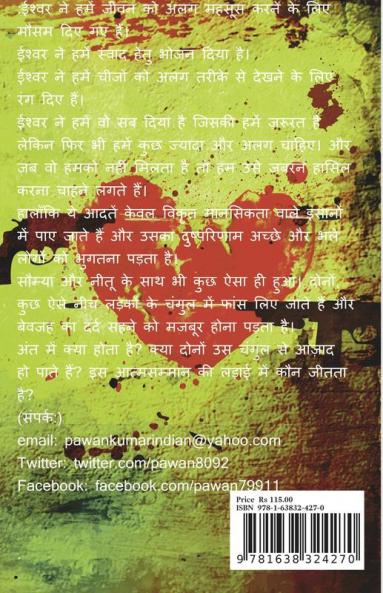 ईश्वर ने हमें जीवन को अलग महसूस करने के लिए
मौसम दिए गए हैं।
ईश्वर ने हमें स्वाद हेतु भोजन दिया है।
ईश्वर ने हमें चीजों को अलग तरीके से देखने के लिए
रंग दिए हैं।
ईश्वर ने हमें वो सब दिया है जिसकी हमें ज़रूरत है
लेकिन फिर भी हमें कुछ ज्यादा और अलग चाहिए। और
जब वो हमको नहीं मिलता है तो हम उसे जबरन हासिल
करना चाहने लगते हैं।
हालाँकि ये आदतें केवल विकृत मानसिकता वाले इंसानों
में पाए जाते हैं और उसका दुष्परिणाम अच्छे और भले
लोगों को भुगतना पड़ता है।
सौम्या और नीतू के साथ भी कुछ ऐसा ही हुआ। दोनों,
कुछ ऐसे नीच लड़कों के चंगुल में फांस लिए जाते हैं और
बेवजह का दर्द सहने को मजबूर होना पड़ता है।
अंत में क्या होता है? क्या दोनों उस चंगुल से आज़ाद
हो पाते हैं? इस आत्मसम्मान की लड़ाई में कौन जीतता
है?
(संपर्क:)
email: pawankumarindian@yahoo.com
Twitter: twitter.com/pawan8092
Facebook: facebook.com/pawan79911
Price Rs 115.00
ISBN 978-1-63832-427-0
9 781638 324270